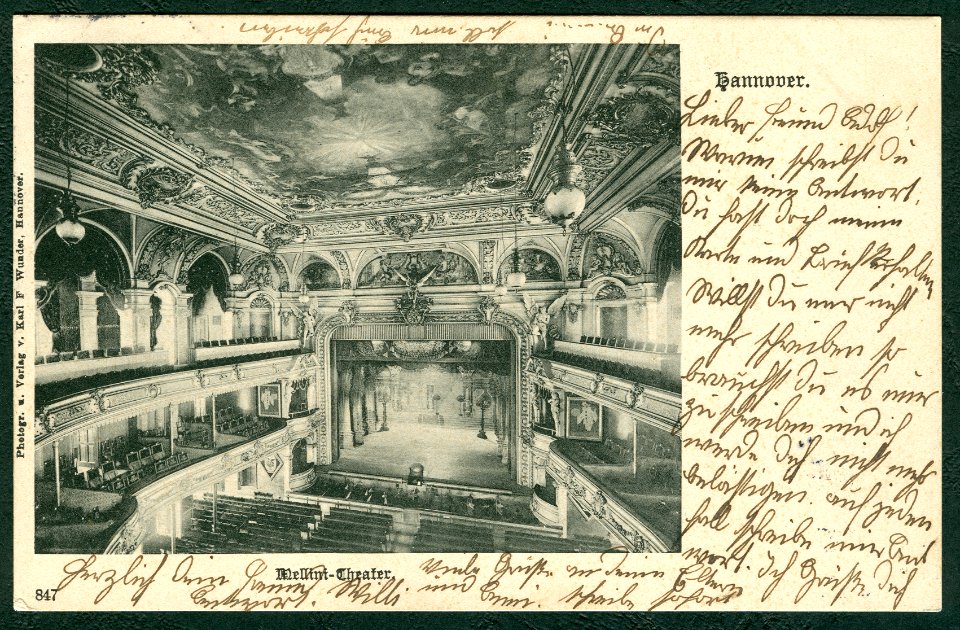 Hannover.
Lieber Freund Rudi!
Warum schreibst Du
mir keine Antwort.
Du hast doch meine
Karte und Brief erhalten
Willst Du mir nicht
mehr schreiben so
brauchst Du es nur
zu schreiben und ich
werde Dich nicht mehr
belästigen. auf jeden
Fall schreibe mir
Ich Grüße Dich
Herzlich Dein Freund
Willi.
Viele Grüße an Deine Eltern
und schreibe sofort
Antwort.
Mellini-Theater.
847
Photogr. u. Verlag v. Karl F. Wunder, Hannover.